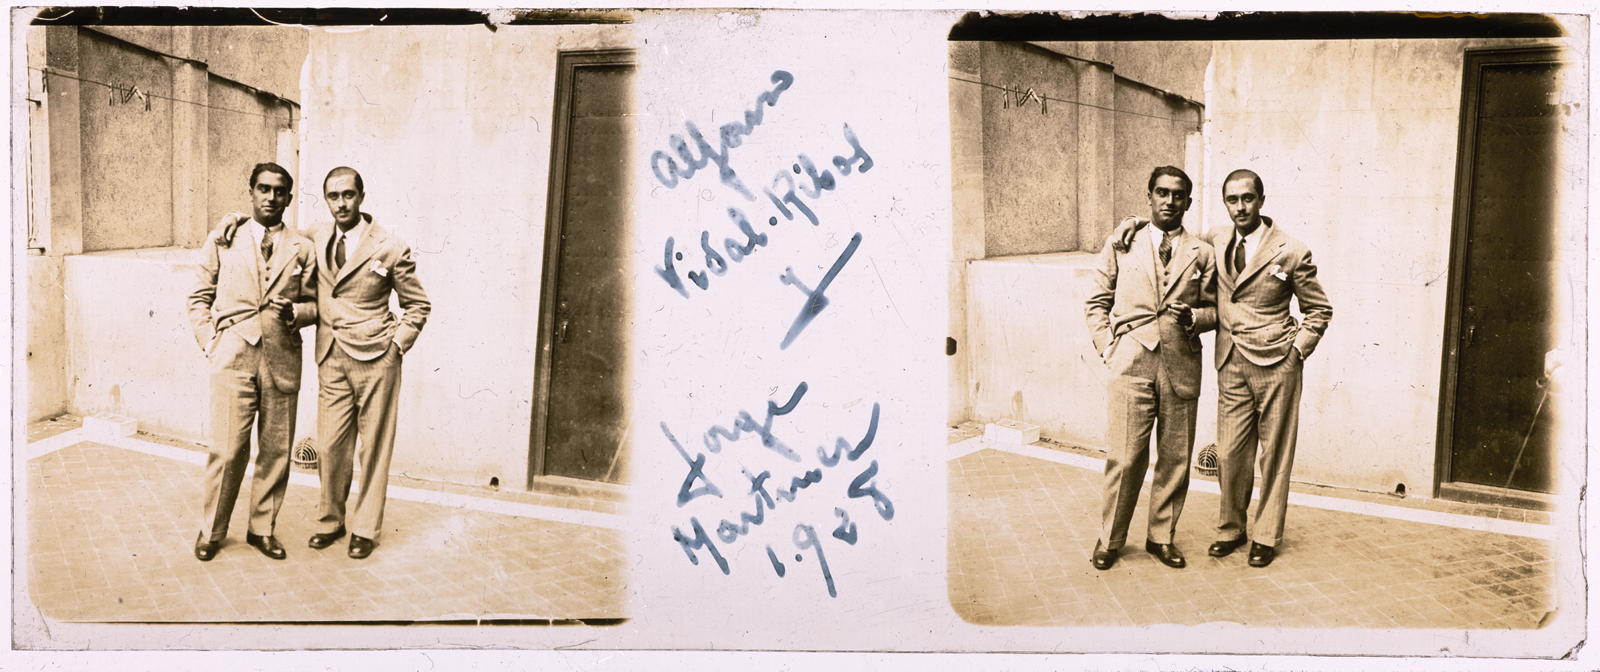 Alfonso
Vidal-Ribas
y
Jorge
Martinez
1.928